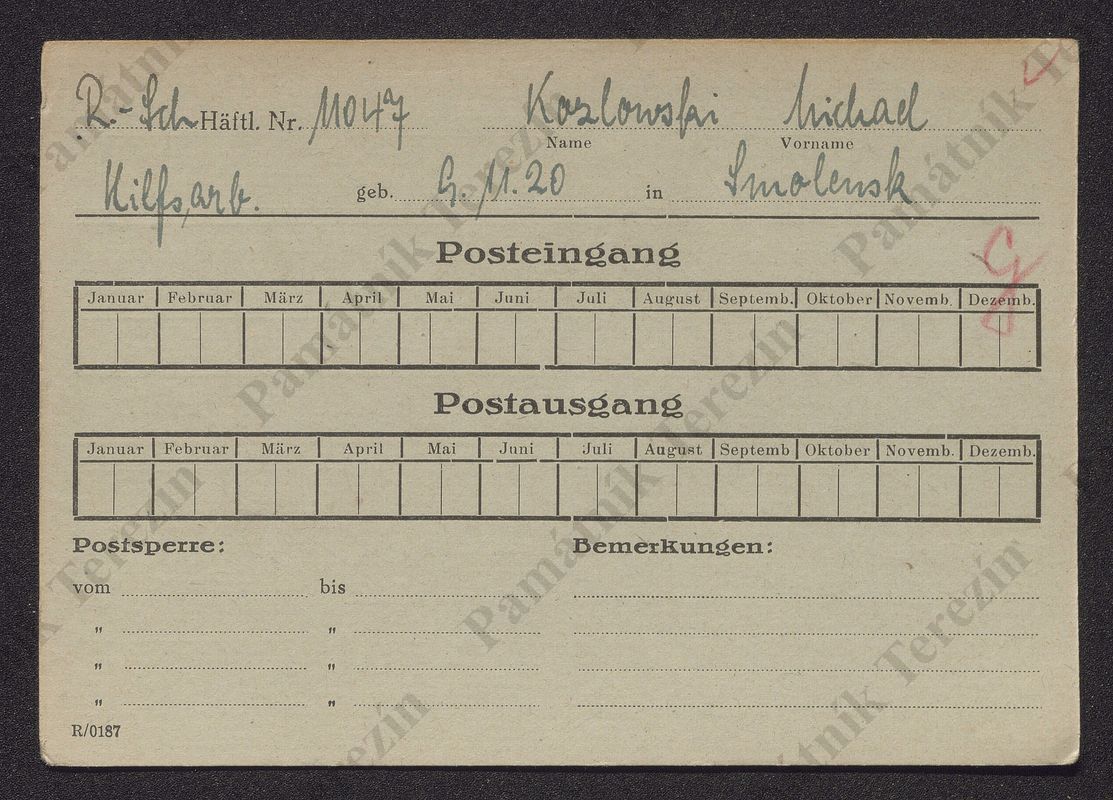 R.-Sch Häftl. Nr. 11047 Kozlowski Michael
Name Vorname
Hilfsarb. geb. 9.11.20 in Smolensk
Posteingang
Januar Februar März April Mai Juni Juli August Septemb. Oktober Novemb. Dezemb.
Postausgang
Januar Februar März April Mai Juni Juli August Septemb Oktober Novemb. Dezemb.
Postsperre: Bemerkungen:
vom bis
" "
" "
" "
R/0187
Památník Terezín